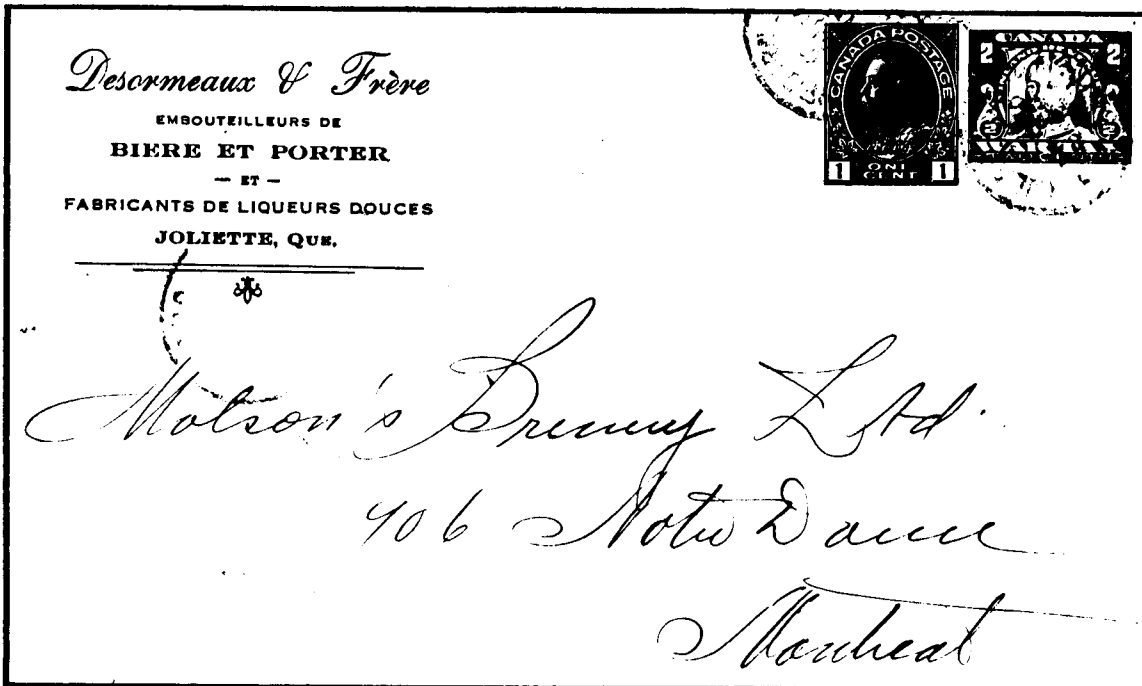 Desormeaux & Frère
EMBOUTEILLEURS DE
BIERE ET PORTER
— ET —
FABRICANTS DE LIQUEURS DOUCES
JOLIETTE, QUE.
CANADA POSTAGE
1 ONE CENT 1
CANADA
2 2
2 2
WAR TAX
Molson's Brewery Ltd.
906 Notre Dame
Montreal